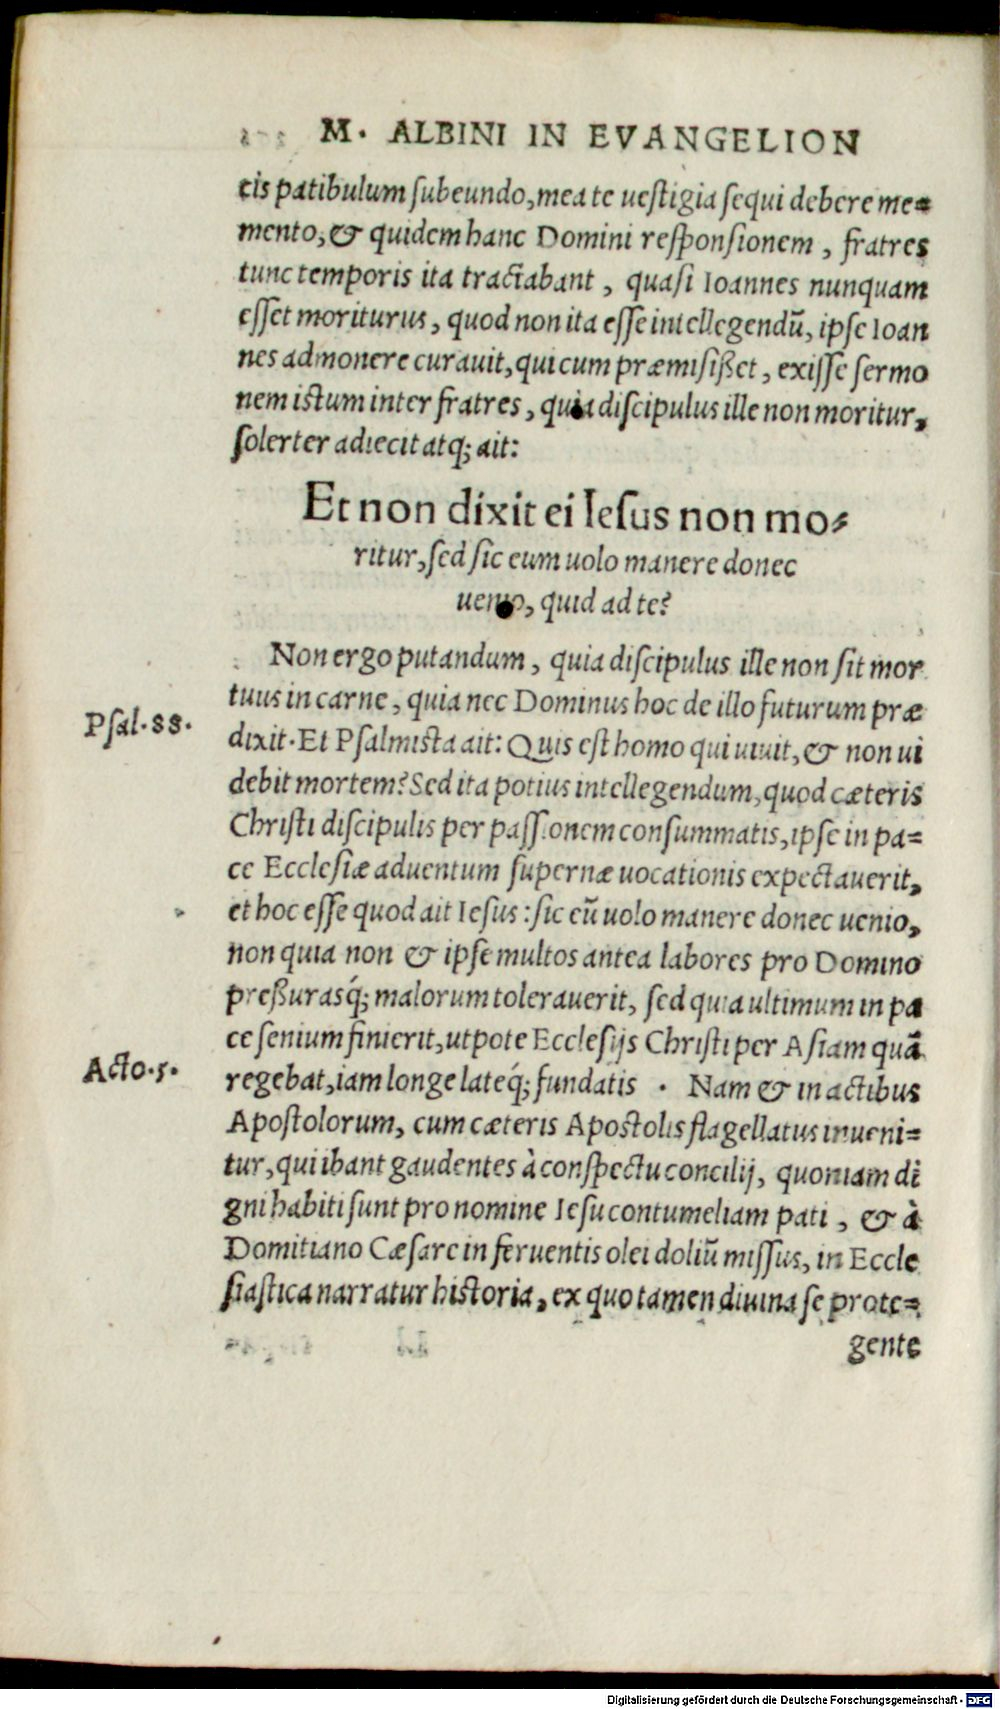 M. ALBINI IN EVANGELION
cis patibulum subeundo, mea te uestigia sequi debere me=
mento, & quidem hanc Domini responsionem, fratres
tunc temporis ita tractabant, quasi Ioannes nunquam
esset moriturus, quod non ita esse intellegendũ, ipse Ioan
nes admonere curauit, qui cum præmisißet, exisse sermo
nem istum inter fratres, quia discipulus ille non moritur,
solerter adiecit atq; ait:
Et non dixit ei Iesus non mo=
ritur, sed sic eum uolo manere donec
uenio, quid ad te?
Non ergo putandum, quia discipulus ille non sit mor
tuus in carne, quia nec Dominus hoc de illo futurum præ
Psal.88.
dixit. Et Psalmista ait: Quis est homo qui uiuit, & non ui
debit mortem? Sed ita potius intellegendum, quod cæteris
Christi discipulis per passionem consummatis, ipse in pa=
ce Ecclesiæ aduentum supernæ uocationis expectauerit,
et hoc esse quod ait Iesus: sic eũ uolo manere donec uenio,
non quia non & ipse multos antea labores pro Domino
preßurasq́; malorum tolerauerit, sed quia ultimum in pa
ce senium finierit, utpote Ecclesijs Christi per Asiam quã
Acto.5.
regebat, iam longe lateq́; fundatis. Nam & in actibus
Apostolorum, cum cæteris Apostolis flagellatus inueni=
tur, qui ibant gaudentes à conspectu concilij, quoniam di
gni habiti sunt pro nomine Iesu contumeliam pati, & à
Domitiano Cæsare in feruentis olei doliũ missus, in Eccle
siastica narratur historia, ex quo tamen diuina se prote=
gente
Digitalisierung gefördert durch die Deutsche Forschungsgemeinschaft - DFG